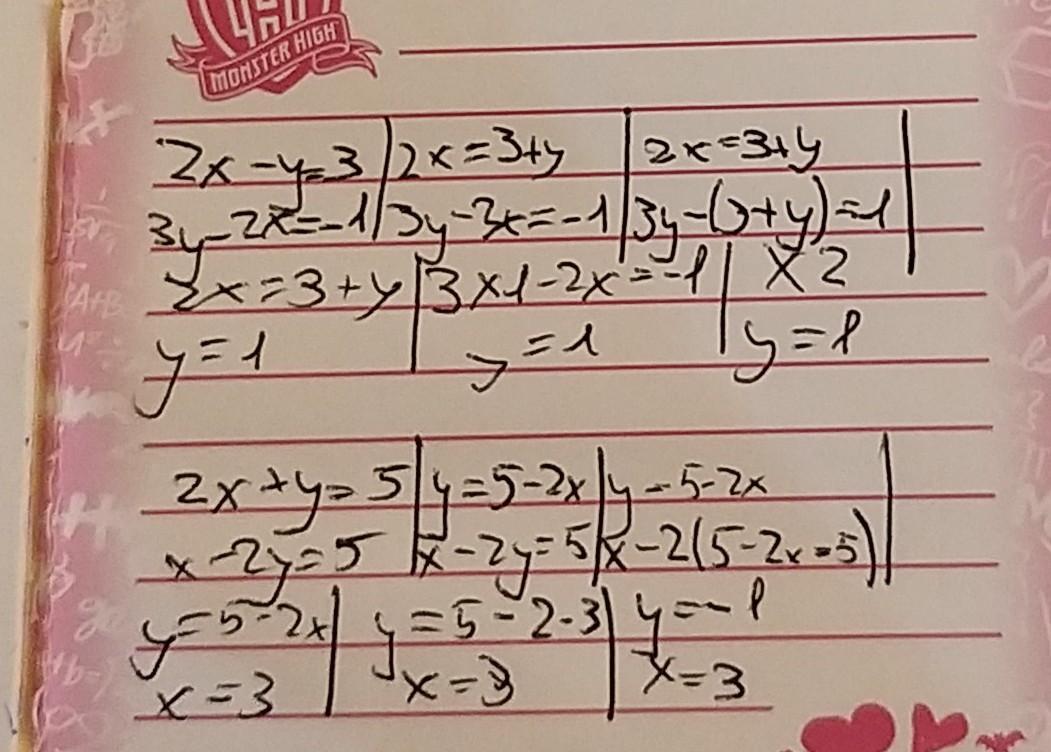 MONSTER HIGH
2x-y=3 | 2x=3+y | 2x=3+y |
3y-2x=-1 | 3y-2x=-1 | 3y-(3+y)=-1 |
2x=3+y | 3x1-2x=-1 | X 2
y=1 | y=1 | y=1
2x+y=5 | y=5-2x | y=5-2x |
x-2y=5 | x-2y=5 | x-2(5-2x=5) |
y=5-2x | y=5-2·3 | y=-1
x=3 | x=3 | x=3